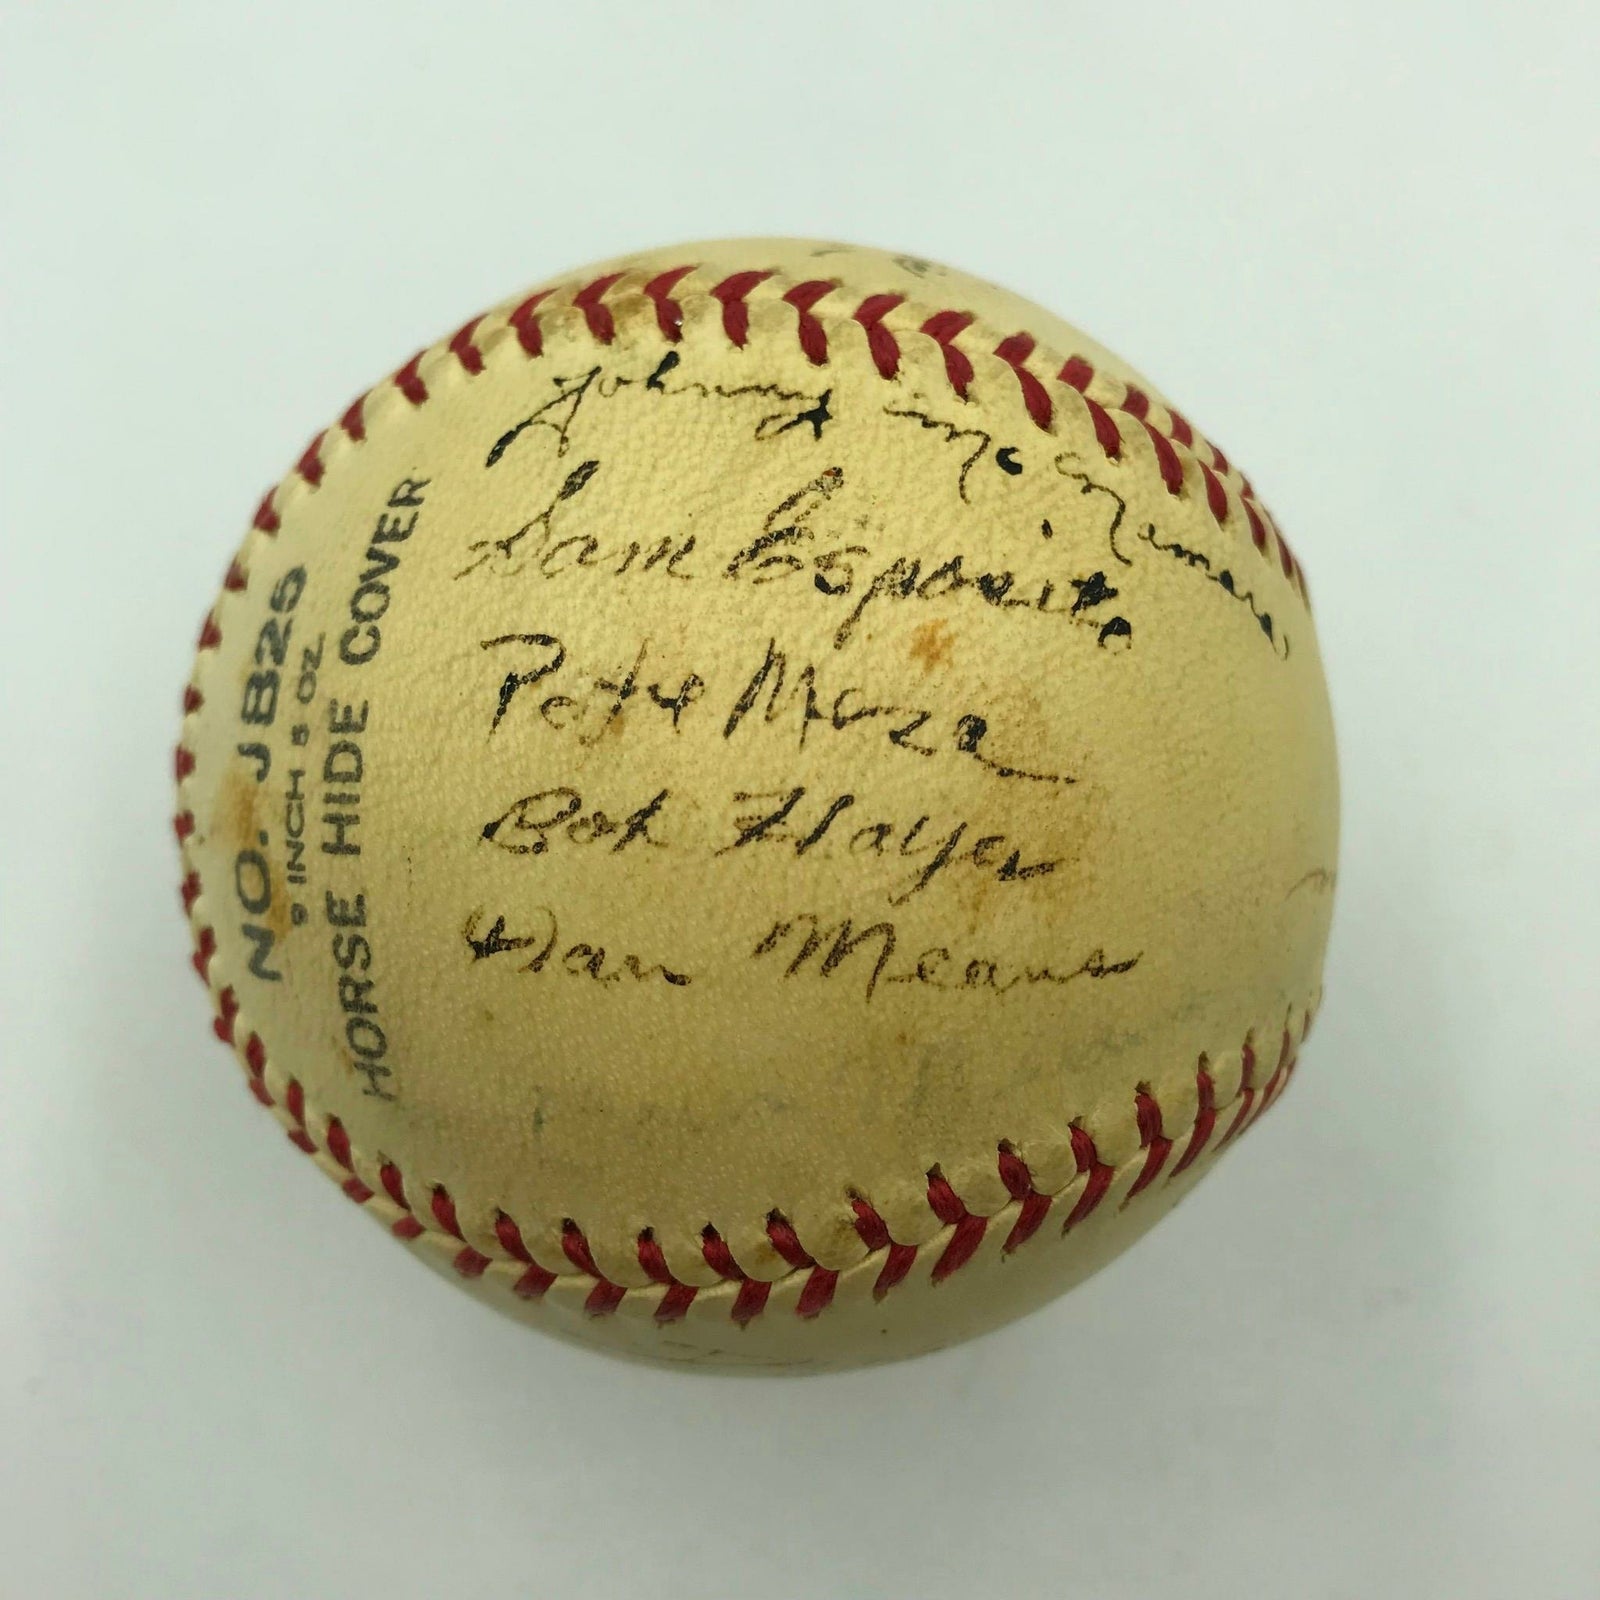 NO. JB25
9 INCH 5 OZ.
HORSE HIDE COVER
Johnny McNemara
Sam Esposito
Pete Maza
Bob Hayer
Dan Means